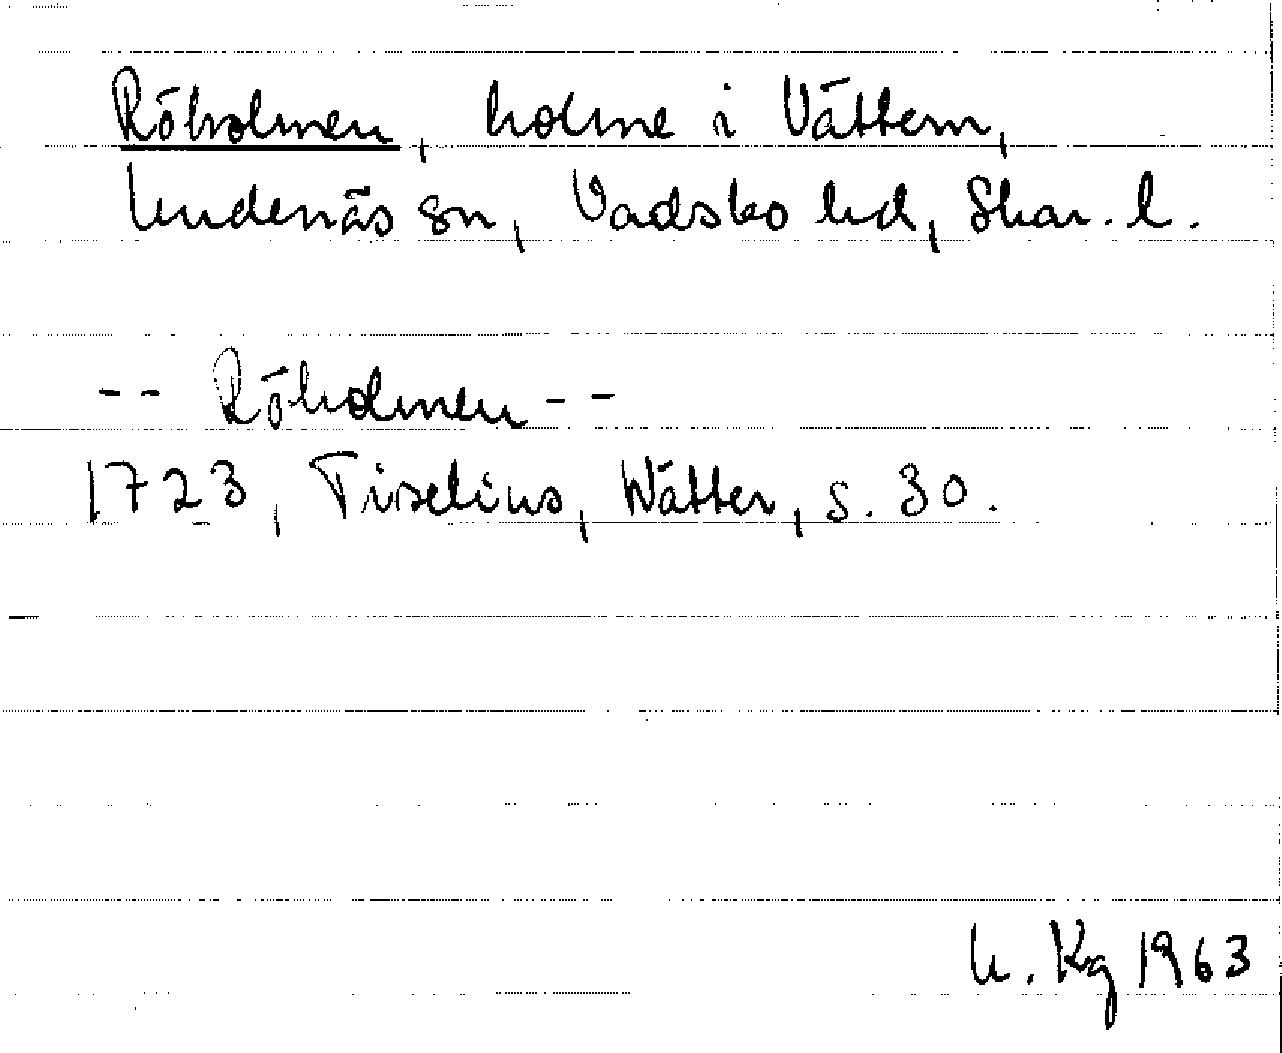 Röholmen, holme i Vättern,
Undenäs sn, Vadsbo hd, Skar. l.
-- Röholmen --
1723, Tiselius, Wätter, s. 30.
U. Kg 1963